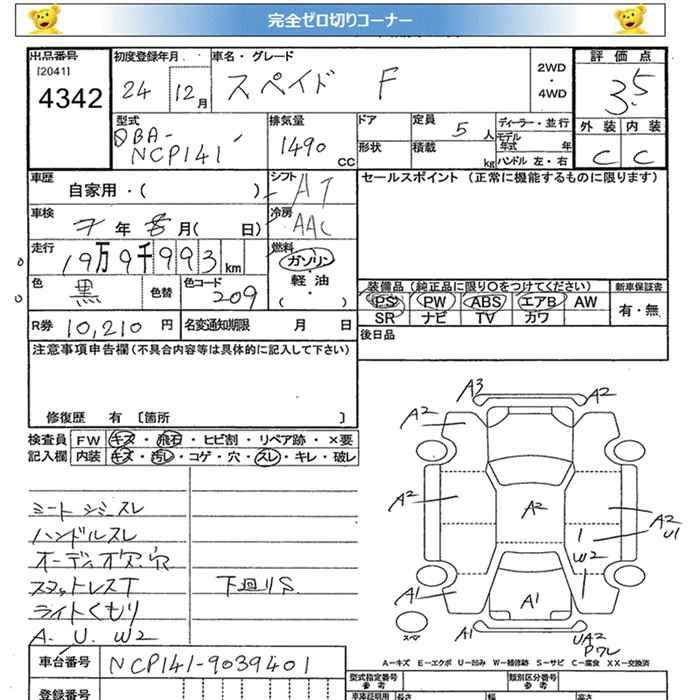 完全ゼロ切りコーナー
出品番号 初度登録年月 車名・グレード 評価点
[2041]
4342 24 12月 スペイド F 2WD・4WD 3.5
型式 排気量 ドア 定員 5人 ディーラー・並行 外装 内装
DBA-NCP141 1490 CC 形状 積載 kg モデル年式 年 ハンドル 左・右 C C
車歴 シフト セールスポイント (正常に機能するものに限ります)
自家用・( ) AT
車検 冷房
7年 8月( 日) AAC
走行 燃料
19万9千993km ガソリン
色 色替 色コード 軽・油 装備品 (純正品に限り○をつけてください) 新車保証書
黒 209 ・( ) PS PW ABS エアB AW 有・無
SR ナビ TV カワ
R券 10,210 円 名変通知期限 月 日 後日品
注意事項申告欄(不具合内容等は具体的に記入して下さい)
修復歴 有 [箇所 ]
検査員 FW キズ・飛石・ヒビ割・リペア跡・×要
記入欄 内装 キズ・汚レ・コゲ・穴・スレ・キレ・破レ
シート シミ スレ
ハンドルスレ
オーディオ欠、穴
スタットレスT 下廻りS
ライトくもり
A. U. W2
A3 A2
A2
A2 A2 A2 U1
W2
A1 A1
スペア A1 UA2
A-キズ E-エクボ U-凹み W-補修跡 S-サビ C-腐食 XX-交換済
車台番号 NCP141-9039401
型式指定番号 参考 類別区分番号 参考
登録番号 車庫証明用 長さ 幅 高さ